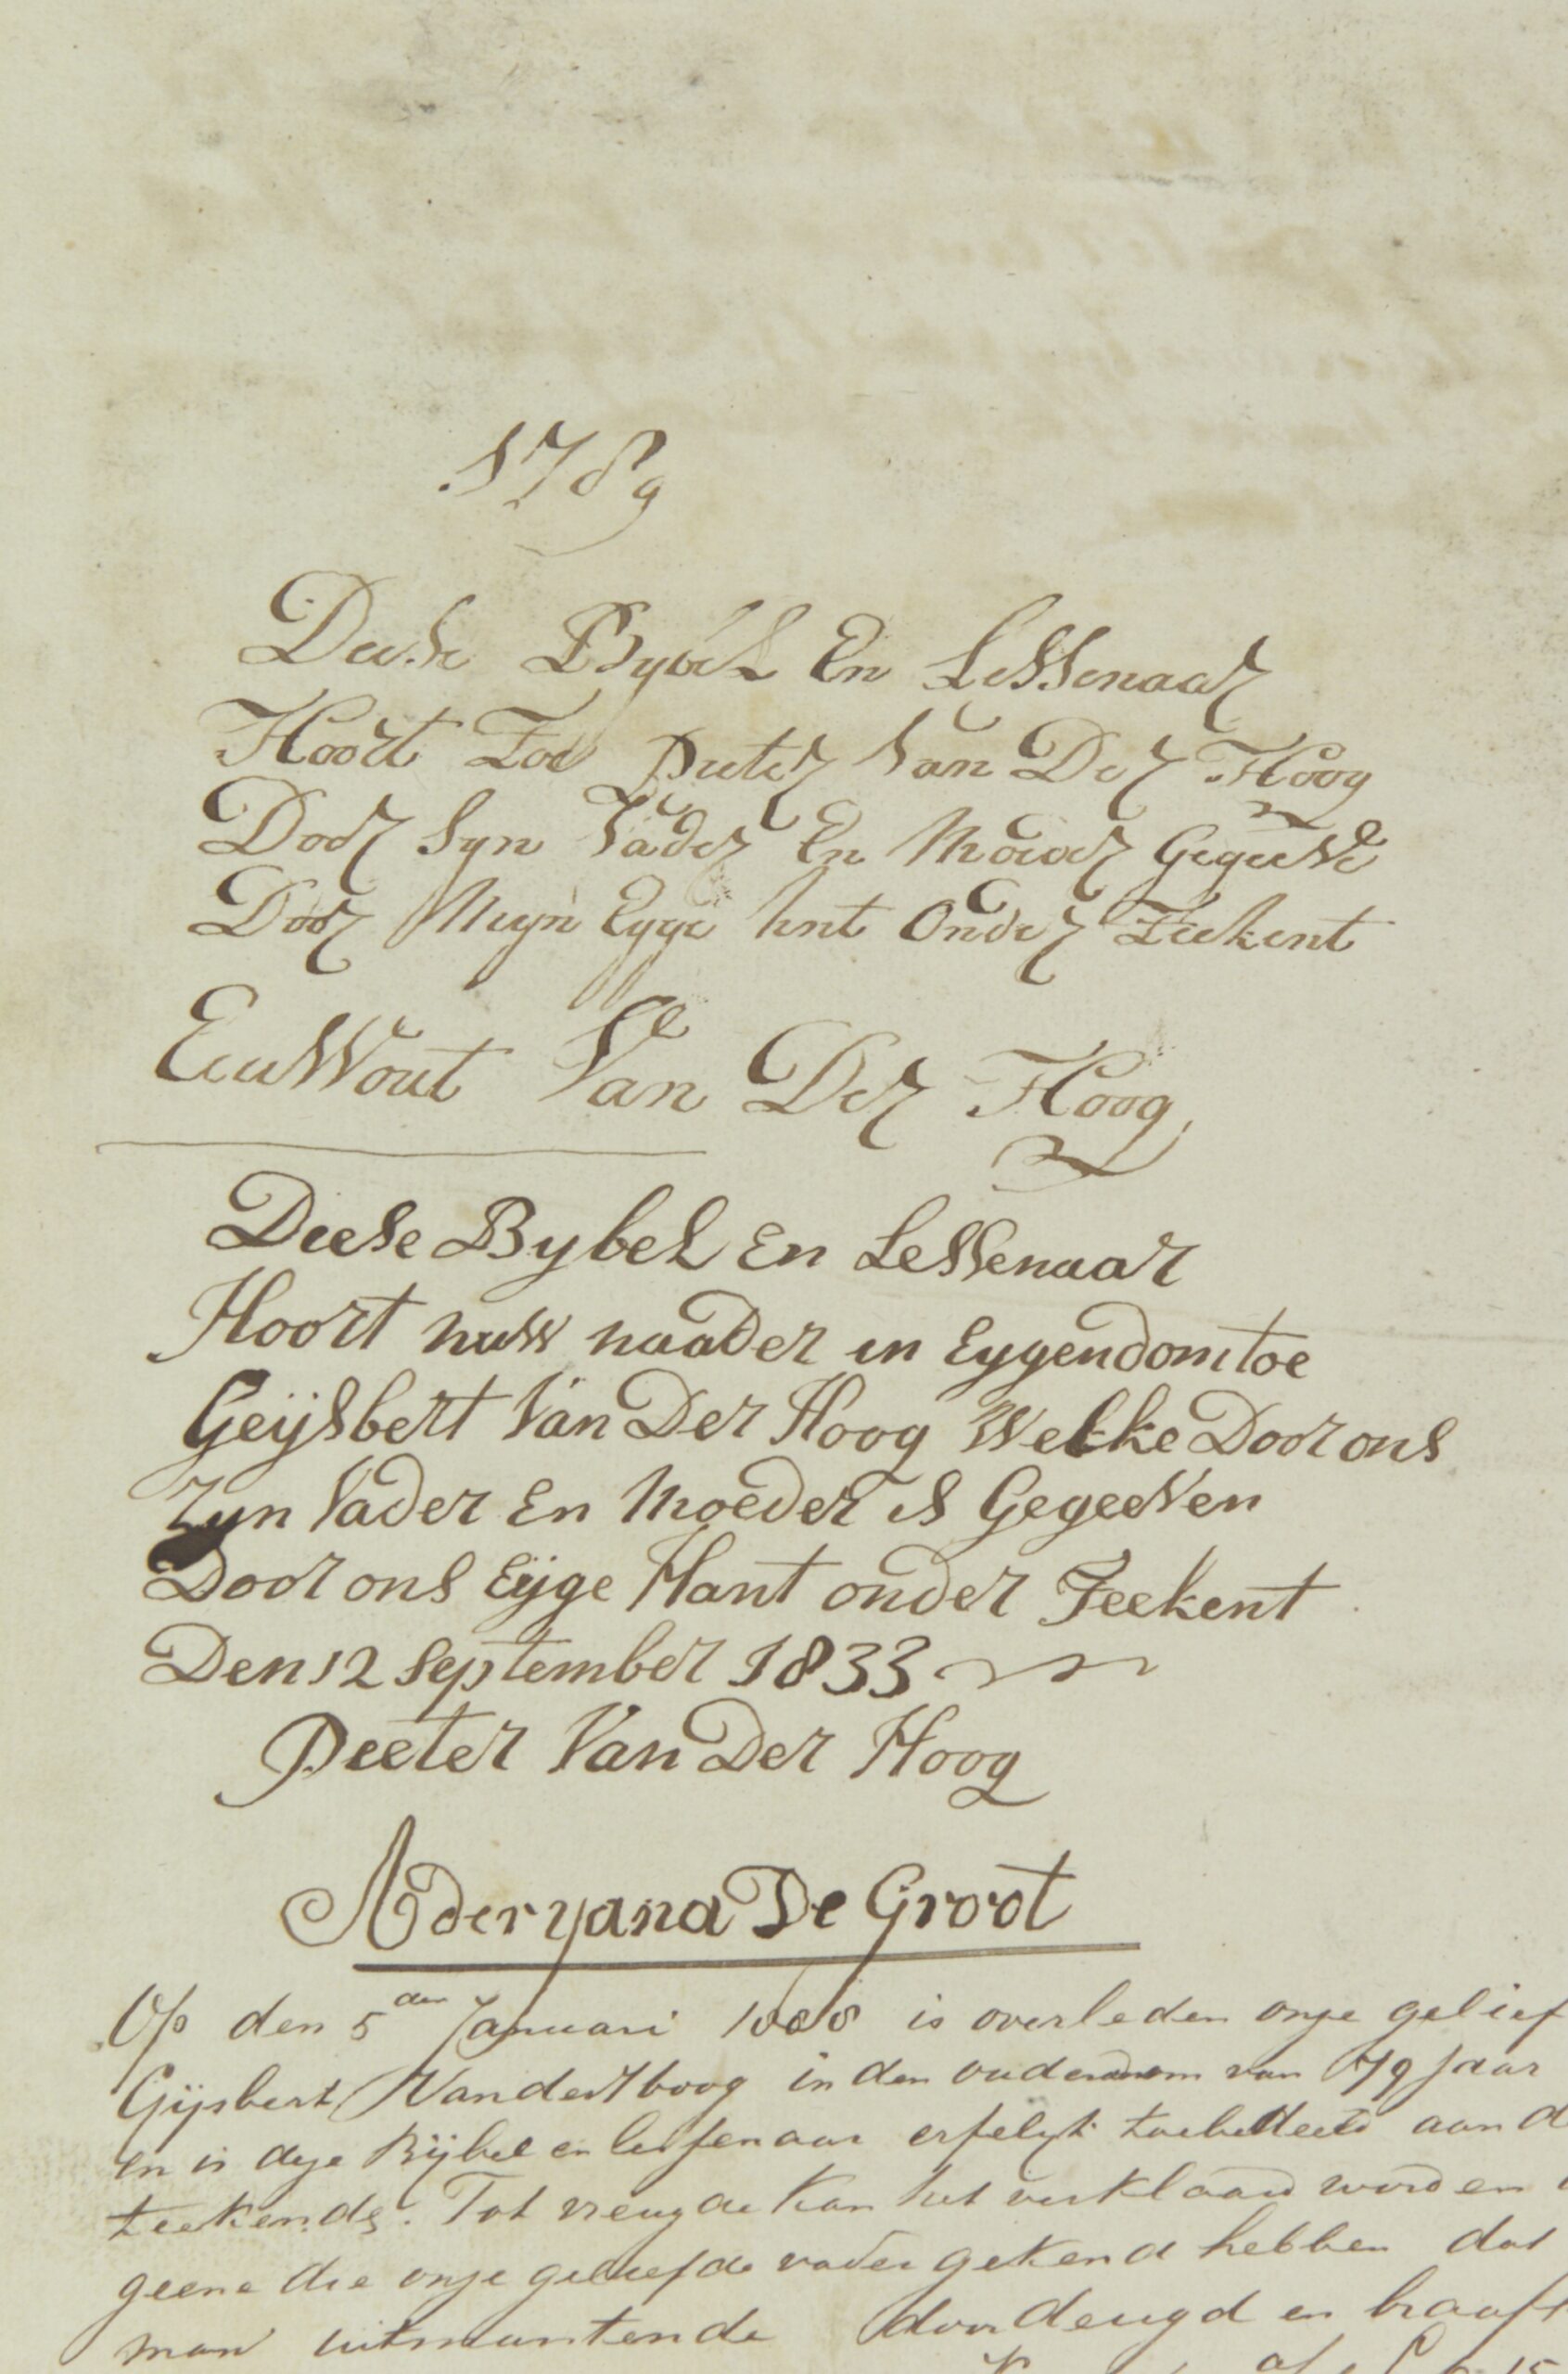 1789
Deese Bybel En Lessenaar
Hoort Toe Pieter Van Der Hoog
Door Syn Vader En Moeder Gegeeve
Door Meyn Eyge hnt Onder Teekent
EeuWout Van Der Hoog
Deese Bybel En Lessenaar
Hoort nuw naader in Eygendom toe
Geijsbert Van Der Hoog Welke Door ons
Zyn Vader En Moeder is Gegeeven
Door ons Eijge Hant onder Teekent
Den 12 September 1833
Peeter Van Der Hoog
Aderyana De Groot
Op den 5den Januari 1888 is overleden onze gelief
Gijsbert Vanderhoog in den ouderdom van 79 jaar
en is deze Bijbel en lessenaar erfelyk toebedeeld aan d
teekende. Tot vreugde kan het verklaard worden
geene die onze geliefde vader gekend hebben dat
man uitmuntende door deugd en braaf